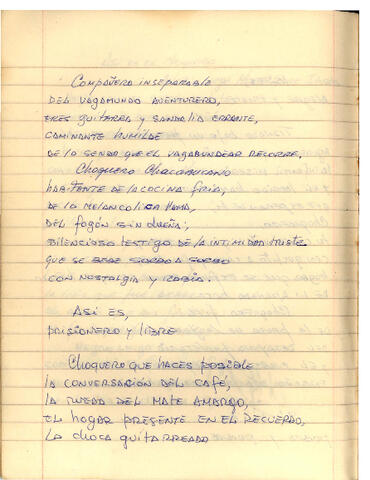 Compañero inseparable
DEL VAGAMUNDO AVENTURERO,
ERES GUITARRA Y SANDALIA ERRANTE,
CAMINANTE HUMILDE
DE LA SENDA QUE EL VAGABUNDEAR RECORRE,
CHOQUERO CHACABUCANO
HABITANTE DE LA COCINA FRIA,
DE LA MELANCOLICA MAMA,
DEL FOGÓN SIN DUEÑA;
SILENCIOSO TESTIGO DE LA INTIMIDAD TRISTE
QUE SE BEBE SORBO A SORBO
CON NOSTALGIA Y RABIA.
ASI ES,
PRISIONERO Y LIBRE
CHOQUERO QUE HACES POSIBLE
LA CONVERSACIÓN DEL CAFÉ,
LA RUEDA DEL MATE AMARGO,
EL HOGAR PRESENTE EN EL RECUERDO,
LA CHOCA GUITARREADA